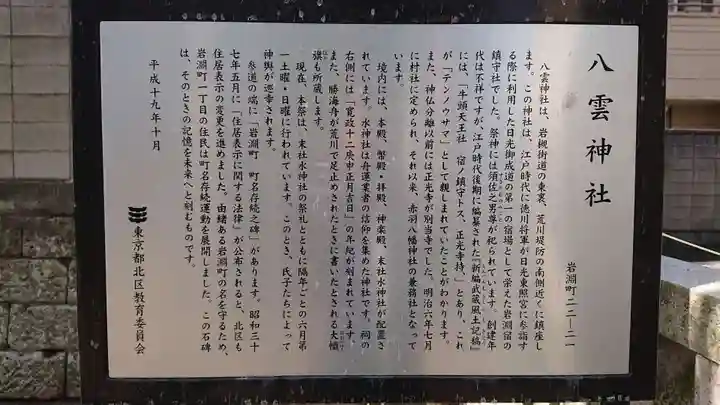 八雲神社
岩淵町二二―二一
八雲神社は、岩槻街道の東裏、荒川堤防の南側近くに鎮座し
ます。この神社は、江戸時代に徳川将軍が日光東照宮に参詣す
る際に利用した日光御成道の第一の宿場として栄えた岩淵宿の
鎮守社でした。祭神には須佐之男尊が祀られています。創建年
代は不祥ですが、江戸時代後期に編纂された『新編武蔵風土記稿』
には、「牛頭天王社 宿ノ鎮守トス、正光寺持、」とあり、これ
が「テンノウサマ」として親しまれていたことがわかります。
また、神仏分離以前には正光寺が別当寺でした。明治六年七月
に村社に定められ、それ以来、赤羽八幡神社の兼務社となって
います。
境内には、本殿、幣殿・拝殿、神楽殿、末社水神社が配置さ
れています。水神社は舟運業者の信仰を集めた神社です。祠の
右側には「寛政十二庚申正月吉日」の年紀が刻まれています。
また、勝海舟が荒川で足止めされたときに書いたとされる大幟
旗も所蔵します。
現在、本祭は、末社水神社の祭礼とともに隔年ごとの六月第
一土曜・日曜に行われています。このとき、氏子たちによって
神輿が巡幸されます。
参道の端に「岩淵町 町名存続之碑」があります。昭和三十
七年五月に「住居表示に関する法律」が公布されると、北区も
住居表示の変更を進めました。由緒ある岩淵町の名を守るため、
岩淵町一丁目の住民は町名存続運動を展開しました。この石碑
は、そのときの記憶を未来へと刻むものです。
平成十九年十月
東京都北区教育委員会